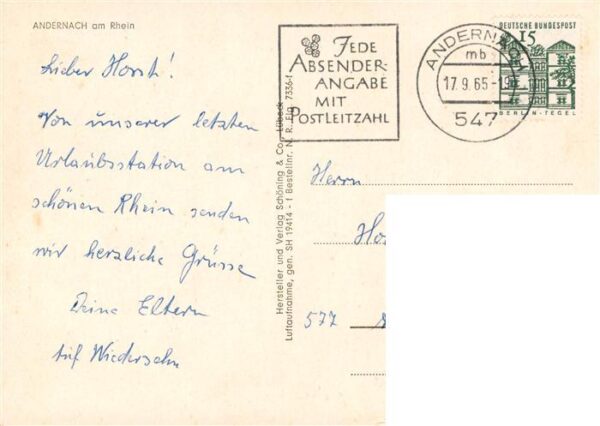 ANDERNACH am Rhein
Lieber Horst!
Von unserer letzten
Urlaubsstation am
schönen Rhein senden
wir herzliche Grüsse
Deine Eltern
Auf Wiedersehn
Hersteller und Verlag Schöning & Co., Lübeck
Luftaufnahme, gen. SH 19414 - f Bestellnr. N. R. Flg. 7336-f
JEDE
ABSENDER-
ANGABE
MIT
POSTLEITZAHL
ANDERNACH
mb
17.9.65-19
547
DEUTSCHE BUNDESPOST
15
BERLIN-TEGEL
Herrn
Hors
577